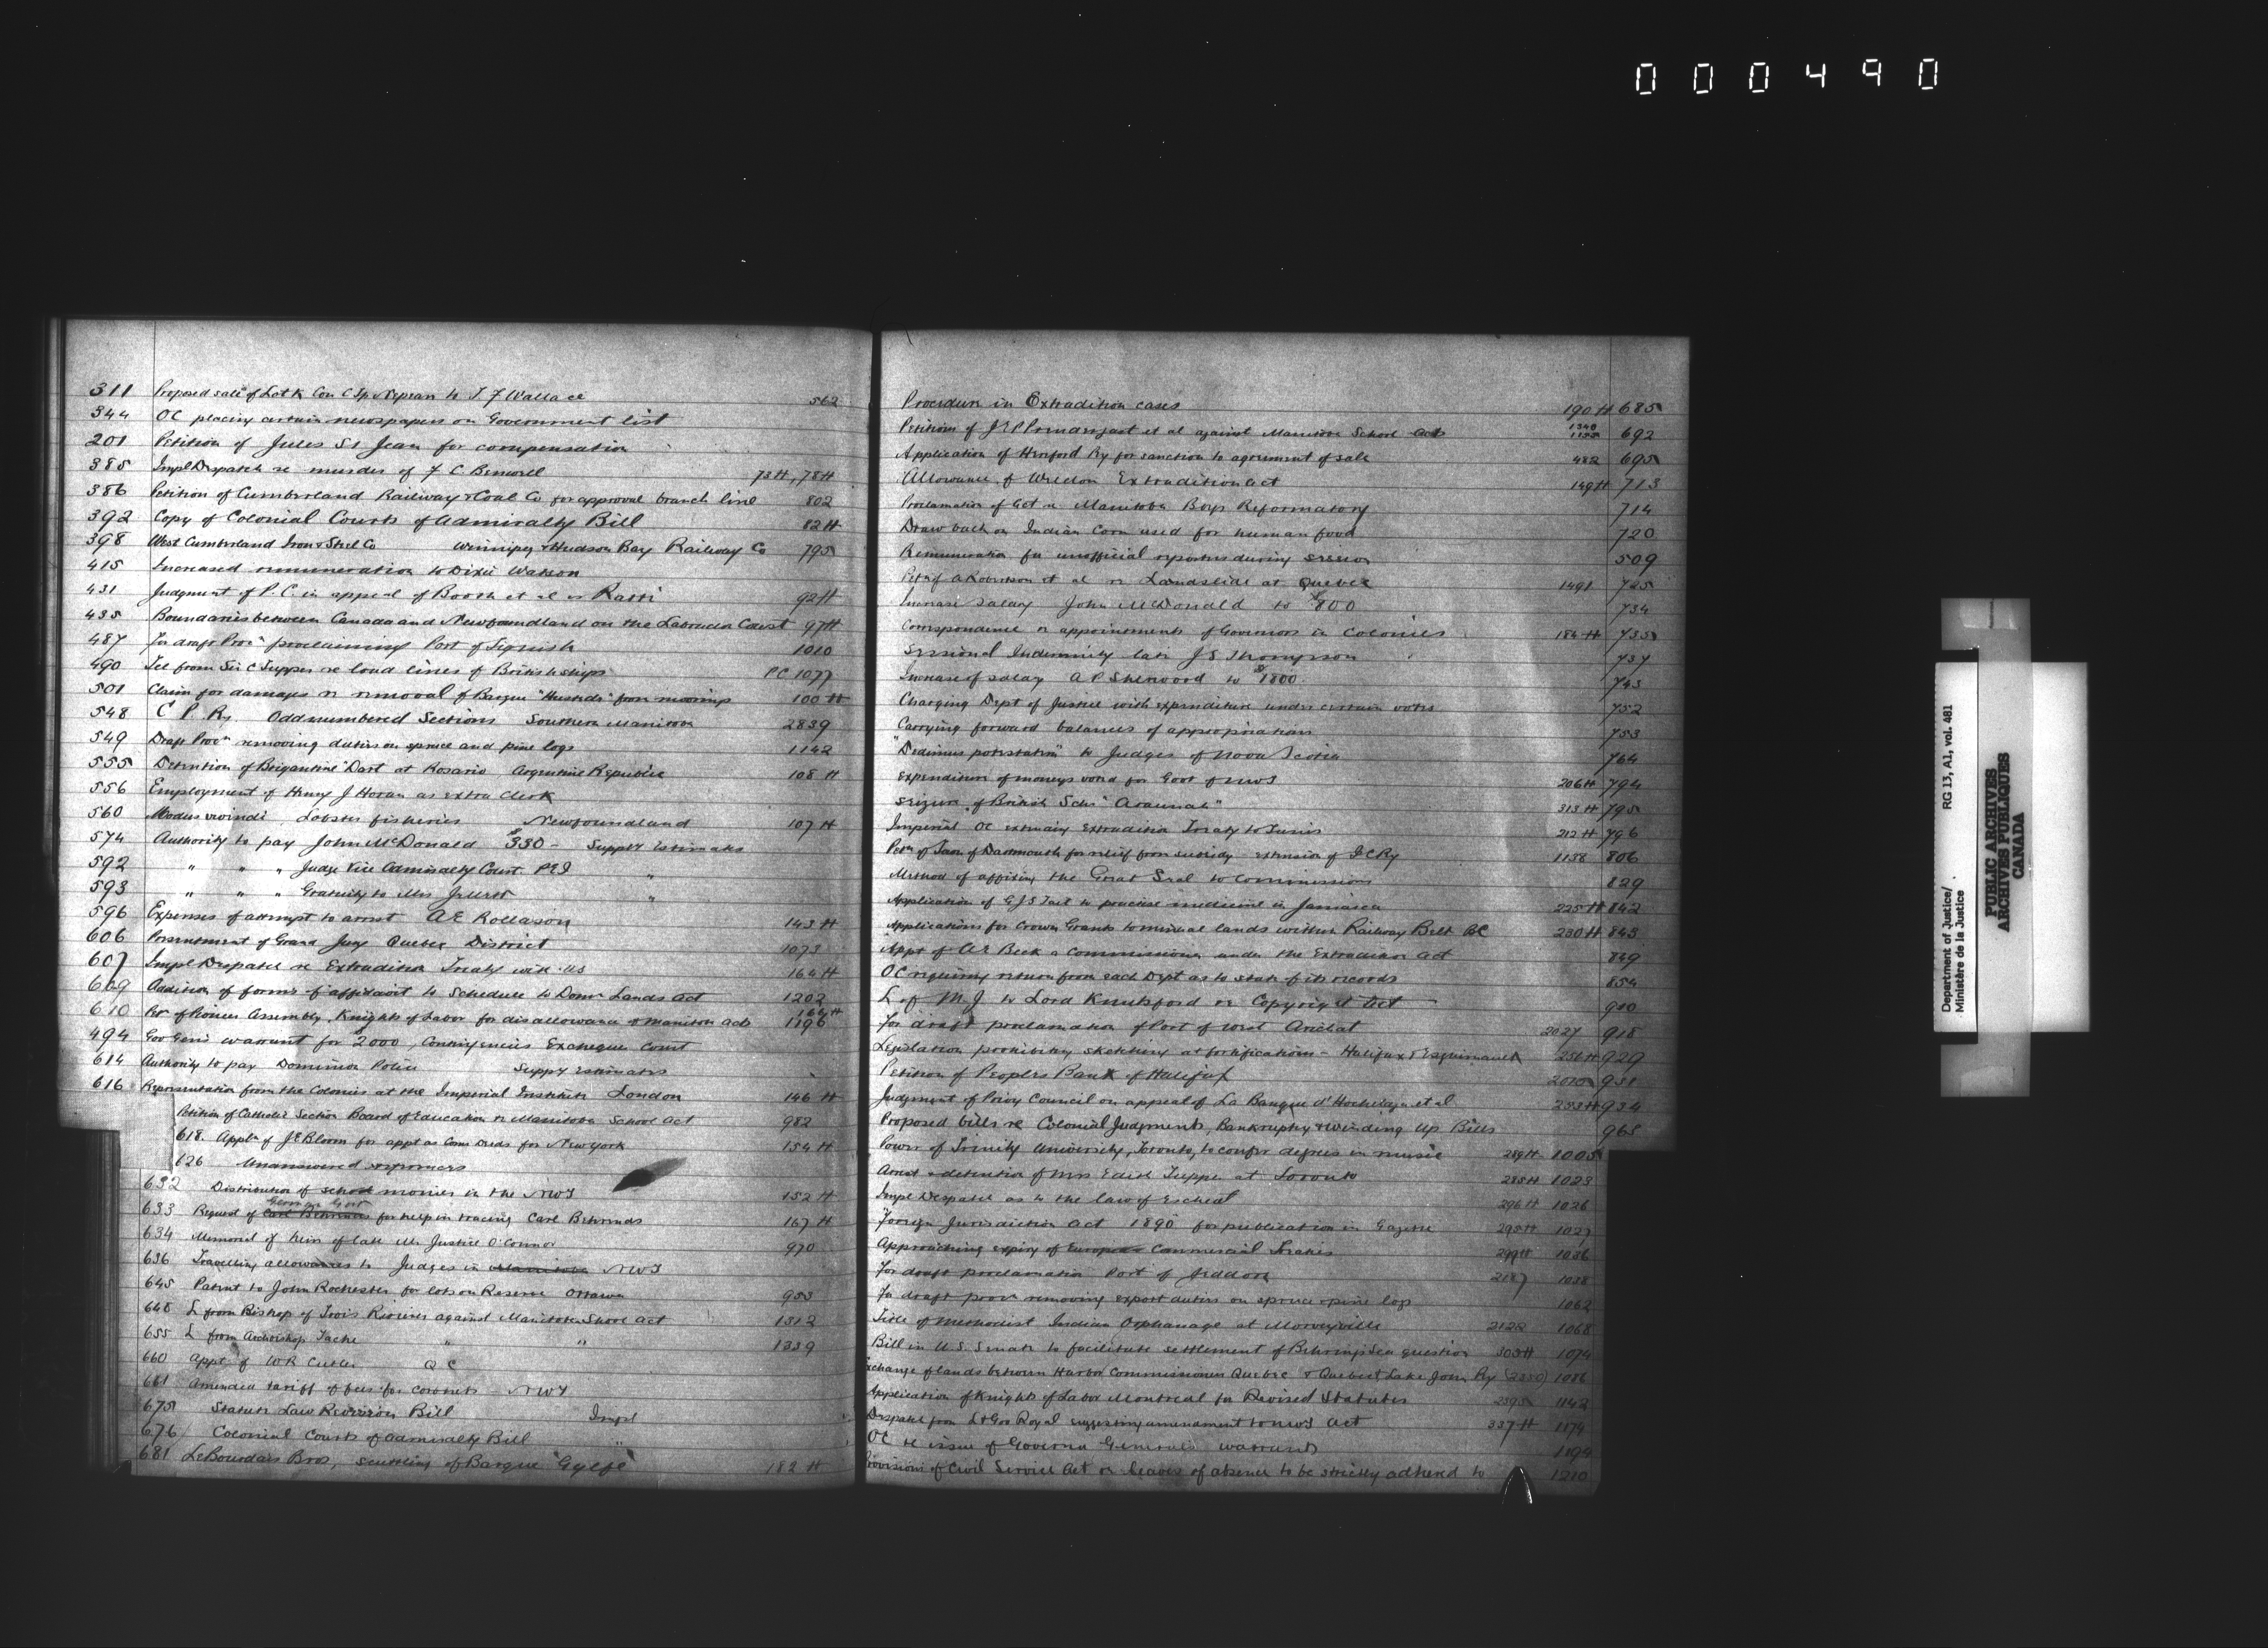 000490
311 Proposed sale of Lot K Con C Tp Nepean to T F Wallace 562
344 OC placing certain newspapers on Government list
201 Petition of Jules St Jean for compensation
385 Impl Despatch re murder of F C Benwell 73 H, 78 H
386 Petition of Cumberland Railway & Coal Co for approval branch line 802
392 Copy of Colonial Courts of Admiralty Bill 82 H
398 West Cumberland Iron & Steel Co Winnipeg & Hudson Bay Railway Co 795
415 Increased remuneration to Dixie Watson
431 Judgment of P. C. in appeal of Booth et al vs Ratti 92 H
435 Boundaries between Canada and Newfoundland on the Labrador Coast 97 H
487 For draft Procn proclaiming Port of Tignish 1010
490 Tel from Sir C Tupper re load lines of British ships PC 1077
501 Claim for damages re removal of Barque from moorings 100 H
548 C P Ry Odd numbered Sections Southern Manitoba 2839
549 Draft Procn removing duties on spruce and pine logs 1142
555 Detention of Brigantine "Dart" at Rosario, Argentine Republic 108 H
556 Employment of Henry J Horan as extra Clerk
560 Modus vivendi, Lobster fisheries Newfoundland 107 H
574 Authority to pay John McDonald $330 - Suppy Estimates
592 " " " Judge Vice Admiralty Court PEI "
593 " " " Gratuity to Mrs "
596 Expenses of attempt to arrest A E Rollason 143 H
606 Presentment of Grand Jury Quebec District 1073
607 Impl Despatch re Extradition Treaty with US 164 H
609 Addition of forms of affidavit to Schedule to Domn Lands Act 1202
610 Petn of Pioneer Assembly, Knights of Labor for disallowance of Manitoba Acts 1196
494 Gov Genl's warrant for $2000, Contingencies Exchequer Court
614 Authority to pay Dominion Police Suppy Estimates
616 Representation from the Colonies at the Imperial Institute London 146 H
Petition of Catholic Section Board of Education re Manitoba School Act 982
618. Appln of J E Bloom for appt as Com Deeds for New York 154 H
626 Unanswered references
632 Distribution of school monies in the NWT 152 H
633 Request of German Govt for help in tracing Carl Behrends 167 H
634 Memorial of heirs of late Mr Justice O'Connor 970
636 Travelling allowances to Judges in Manitoba NWT
645 Patent to John Rochester for lots on Reserve Ottawa 953
648 L from Bishop of Trois Rivieres against Manitoba School Act 1312
655 L from Archbishop Tache " " 1339
660 Appt of W R Cutler Q C
661 Amended tariff of fees for coroners - NWT
675 Statute Law Revision Bill Impl
676 Colonial Courts of Admiralty Bill "
681 LeBourdais Bros, scuttling of Barque "Gylfe" 182 H
Procedure in Extradition cases 190 H 685
Petitions of J E P Prendergast et al against Manitoba School Act 1340 692
Application of Hereford Ry for sanction to agreement of sale 482 695
Allowance of Weldon Extradition Act 149 H 713
Proclamation of Act re Manitoba Boys Reformatory 714
Drawback on Indian Corn used for human food 720
Remuneration for unofficial reporters during session 509
Petn of A Robertson et al re Landslide at Quebec 1491 725
Increase salary John McDonald to $800 734
Correspondence re appointments of Governors in Colonies 184 H 735
Sessional Indemnity late J S Thompson 737
Increase of salary A P Sherwood to $1800 743
Charging Dept of Justice with expenditure under certain votes 752
Carrying forward balances of appropriations 753
"Dedimus potestatem" to Judges of Nova Scotia 764
Expenditure of moneys voted for Govt of NWT 206 H 794
Seizure of British Schr "Araunah" 313 H 795
Imperial OC extending Extradition Treaty to Tunis 212 H 796
Petn of Town of Dartmouth for relief from subsidy - extension of I C Ry 1158 806
Method of affixing the Great Seal to Commissions 829
Application of G J S Tait to practise medicine in Jamaica 225 H 842
Applications for Crown Grants to mineral lands within Railway Belt BC 230 H 843
Appt of A E Beck a Commissioner under the Extradition Act 849
OC requiring return from each Dept as to state of its records 854
L of M J to Lord Knutsford re Copyright Act 900
For draft proclamation of Port of West Arichat 2027 918
Legislation prohibiting sketching at fortifications - Halifax & Esquimault 256 H 929
Petition of Peoples Bank of Halifax 931
Judgment of Privy Council on appeal of La Banque d'Hochelaga et al 253 H 934
Proposed bills re Colonial Judgments, Bankruptcy & Winding Up Bills 965
Power of Trinity University, Toronto, to confer degrees in music 289 H 1005
Arrest & detention of Mrs Edith Tupper at Toronto 285 H 1023
Impl Despatch as to the law of Escheat 296 H 1026
Foreign Jurisdiction Act 1890 for publication in Gazette 295 H 1027
Approaching expiry of European Commercial Treaties 299 H 1036
For draft proclamation Port of Jeddore 2187 1038
For draft procn removing export duties on spruce & pine logs 1062
Title of Methodist Indian Orphanage at Morleyville 2122 1068
Bill in U. S. Senate to facilitate settlement of Behring Sea question 303 H 1074
Exchange of lands between Harbor Commissioners Quebec & Quebec & Lake John Ry 2350 1086
Application of Knights of Labor Montreal for Revised Statutes 2395 1142
Despatch from Lt Gov Royal suggesting amendment to NWT Act 337 H 1174
OC re issue of Governor General's warrants 1194
Provisions of Civil Service Act re leaves of absence to be strictly adhered to 1210
Department of Justice/
Ministère de la Justice
RG 13, A1, vol. 481
PUBLIC ARCHIVES
ARCHIVES PUBLIQUES
CANADA